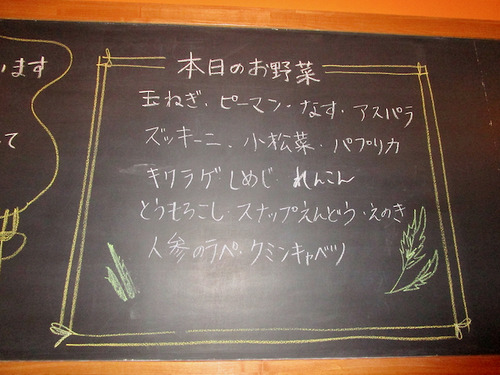 います
て
本日のお野菜
玉ねぎ・ピーマン・なす・アスパラ
ズッキーニ、小松菜・パプリカ
キクラゲしめじ・れんこん
とうもろこし・スナップえんどう・えのき
人参のラペ・クミンキャベツ